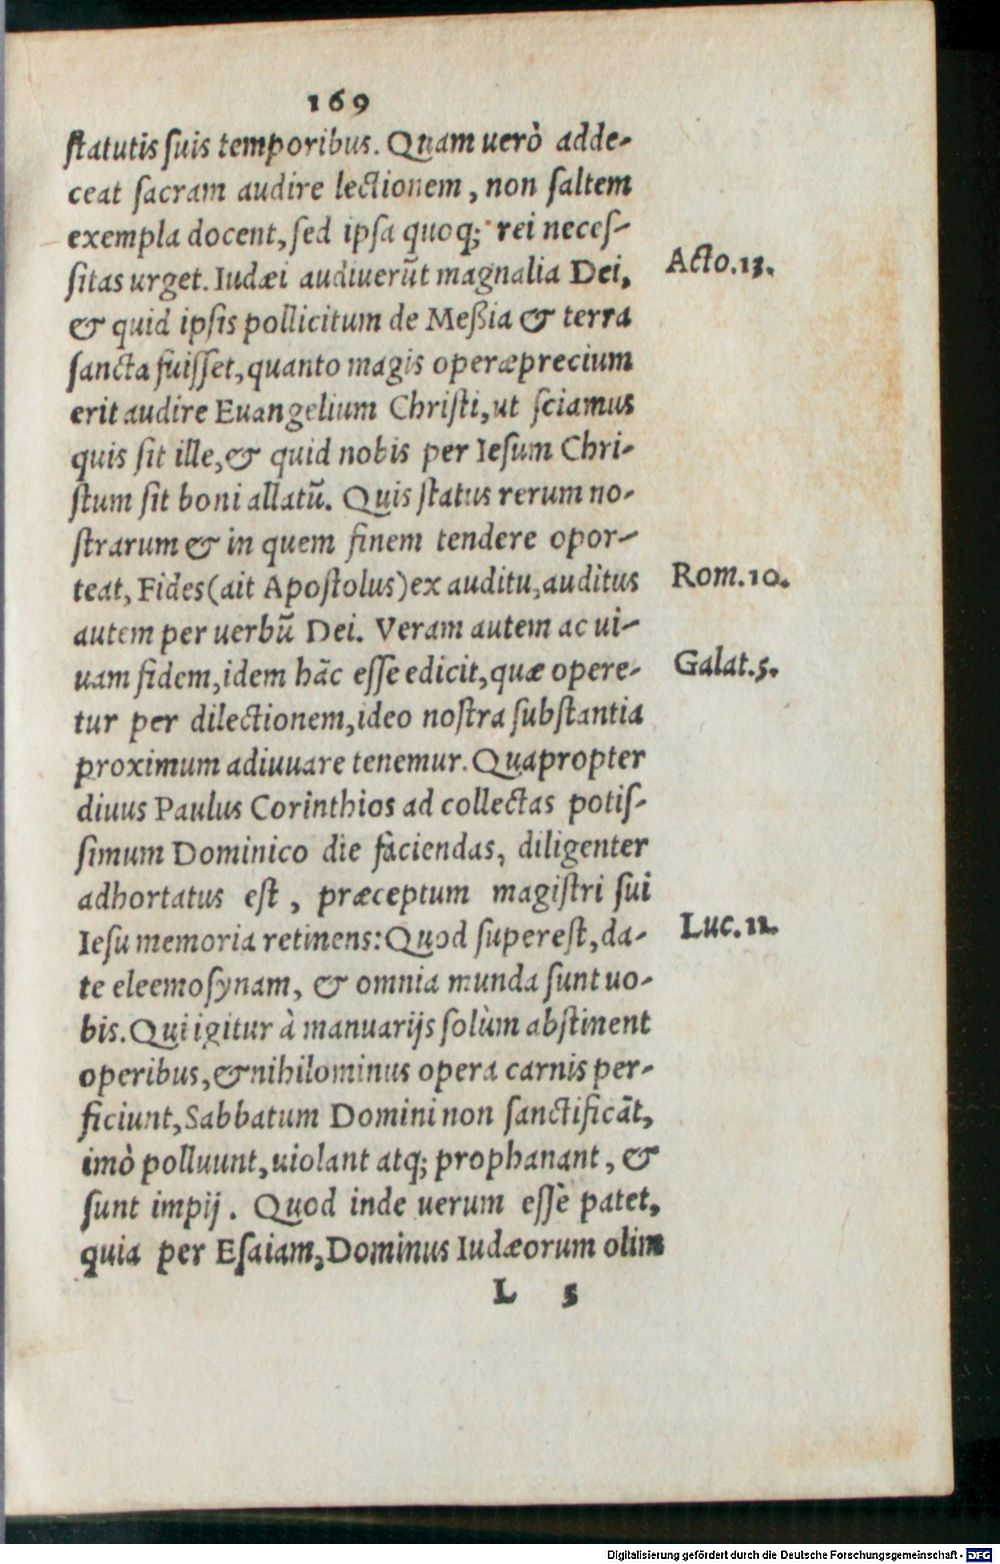 169
statutis suis temporibus. Quam uerò adde-
ceat sacram audire lectionem, non saltem
exempla docent, sed ipsa quoq; rei neces-
sitas urget. Iudæi audiuerũt magnalia Dei,
Acto.13.
& quid ipsis pollicitum de Meßia & terra
sancta fuisset, quanto magis operæprecium
erit audire Euangelium Christi, ut sciamus
quis sit ille, & quid nobis per Iesum Chri-
stum sit boni allatũ. Quis status rerum no-
strarum & in quem finem tendere opor-
teat, Fides (ait Apostolus) ex auditu, auditus
Rom.10.
autem per uerbũ Dei. Veram autem ac ui-
uam fidem, idem hãc esse edicit, quæ opere-
Galat.5.
tur per dilectionem, ideo nostra substantia
proximum adiuuare tenemur. Quapropter
diuus Paulus Corinthios ad collectas potis-
simum Dominico die faciendas, diligenter
adhortatus est, præceptum magistri sui
Iesu memoria retinens: Quod superest, da-
Luc.12.
te eleemosynam, & omnia munda sunt uo-
bis. Qui igitur à manuarijs solùm abstinent
operibus, & nihilominus opera carnis per-
ficiunt, Sabbatum Domini non sanctificãt,
imò polluunt, uiolant atq; prophanant, &
sunt impij. Quod inde uerum essè patet,
quia per Esaiam, Dominus Iudæorum olim
L 5
Digitalisierung gefördert durch die Deutsche Forschungsgemeinschaft - DFG